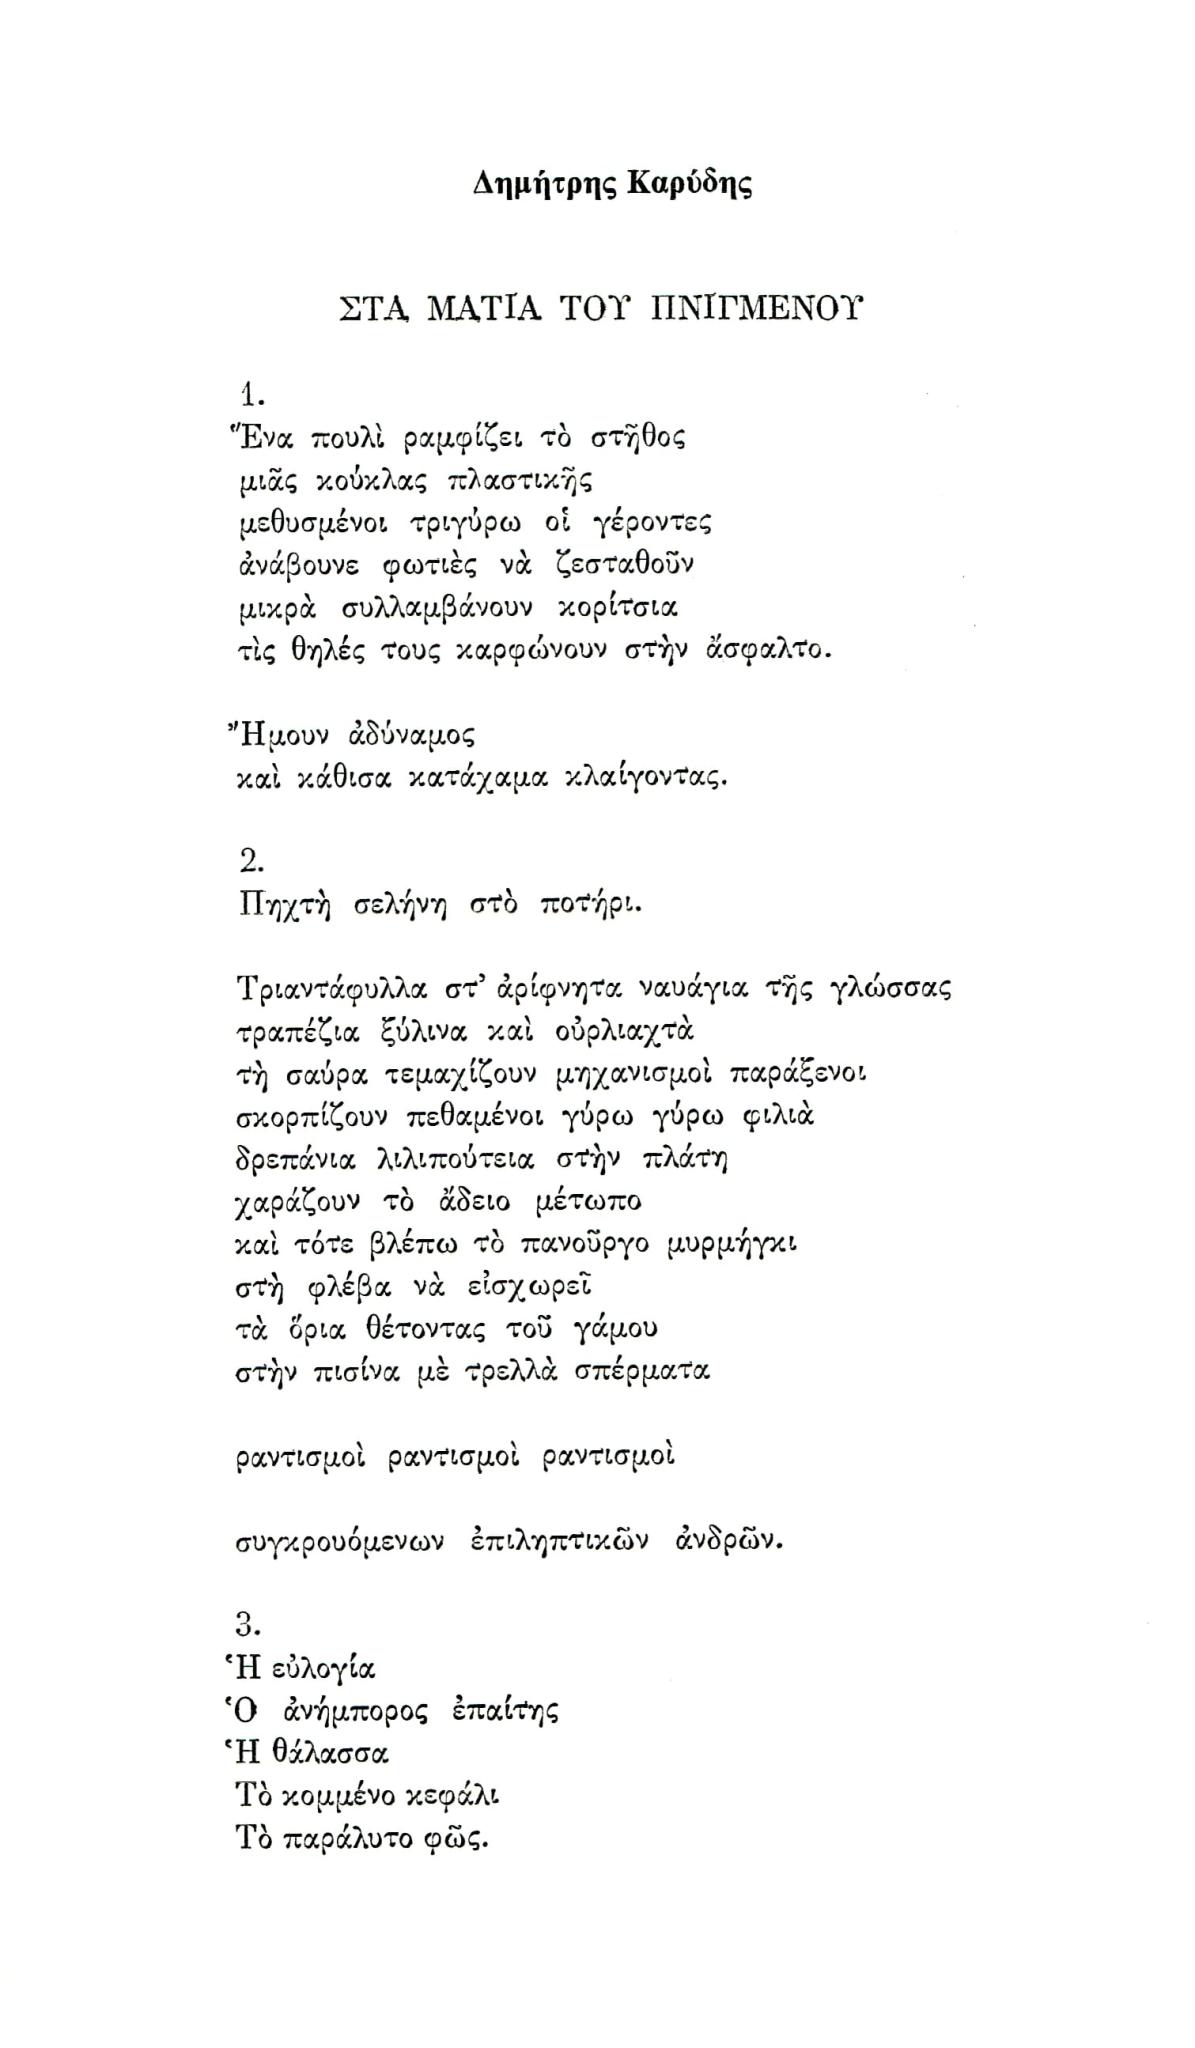 Δημήτρης Καρύδης
ΣΤΑ ΜΑΤΙΑ ΤΟΥ ΠΝΙΓΜΕΝΟΥ
1.
Ἕνα πουλὶ ραμφίζει τὸ στῆθος
μιᾶς κούκλας πλαστικῆς
μεθυσμένοι τριγύρω οἱ γέροντες
ἀνάβουνε φωτιὲς νὰ ζεσταθοῦν
μικρὰ συλλαμβάνουν κορίτσια
τὶς θηλές τους καρφώνουν στὴν ἄσφαλτο.
Ἤμουν ἀδύναμος
καὶ κάθισα κατάχαμα κλαίγοντας.
2.
Πηχτὴ σελήνη στὸ ποτήρι.
Τριαντάφυλλα στ’ ἀρίφνητα ναυάγια τῆς γλώσσας
τραπέζια ξύλινα καὶ οὐρλιαχτὰ
τὴ σαύρα τεμαχίζουν μηχανισμοὶ παράξενοι
σκορπίζουν πεθαμένοι γύρω γύρω φιλιὰ
δρεπάνια λιλιπούτεια στὴν πλάτη
χαράζουν τὸ ἄδειο μέτωπο
καὶ τότε βλέπω τὸ πανοῦργο μυρμήγκι
στὴ φλέβα νὰ εἰσχωρεῖ
τὰ ὅρια θέτοντας τοῦ γάμου
στὴν πισίνα μὲ τρελλὰ σπέρματα
ραντισμοὶ ραντισμοὶ ραντισμοὶ
συγκρουόμενων ἐπιληπτικῶν ἀνδρῶν.
3.
Ἡ εὐλογία
Ὁ ἀνήμπορος ἐπαίτης
Ἡ θάλασσα
Τὸ κομμένο κεφάλι
Τὸ παράλυτο φῶς.